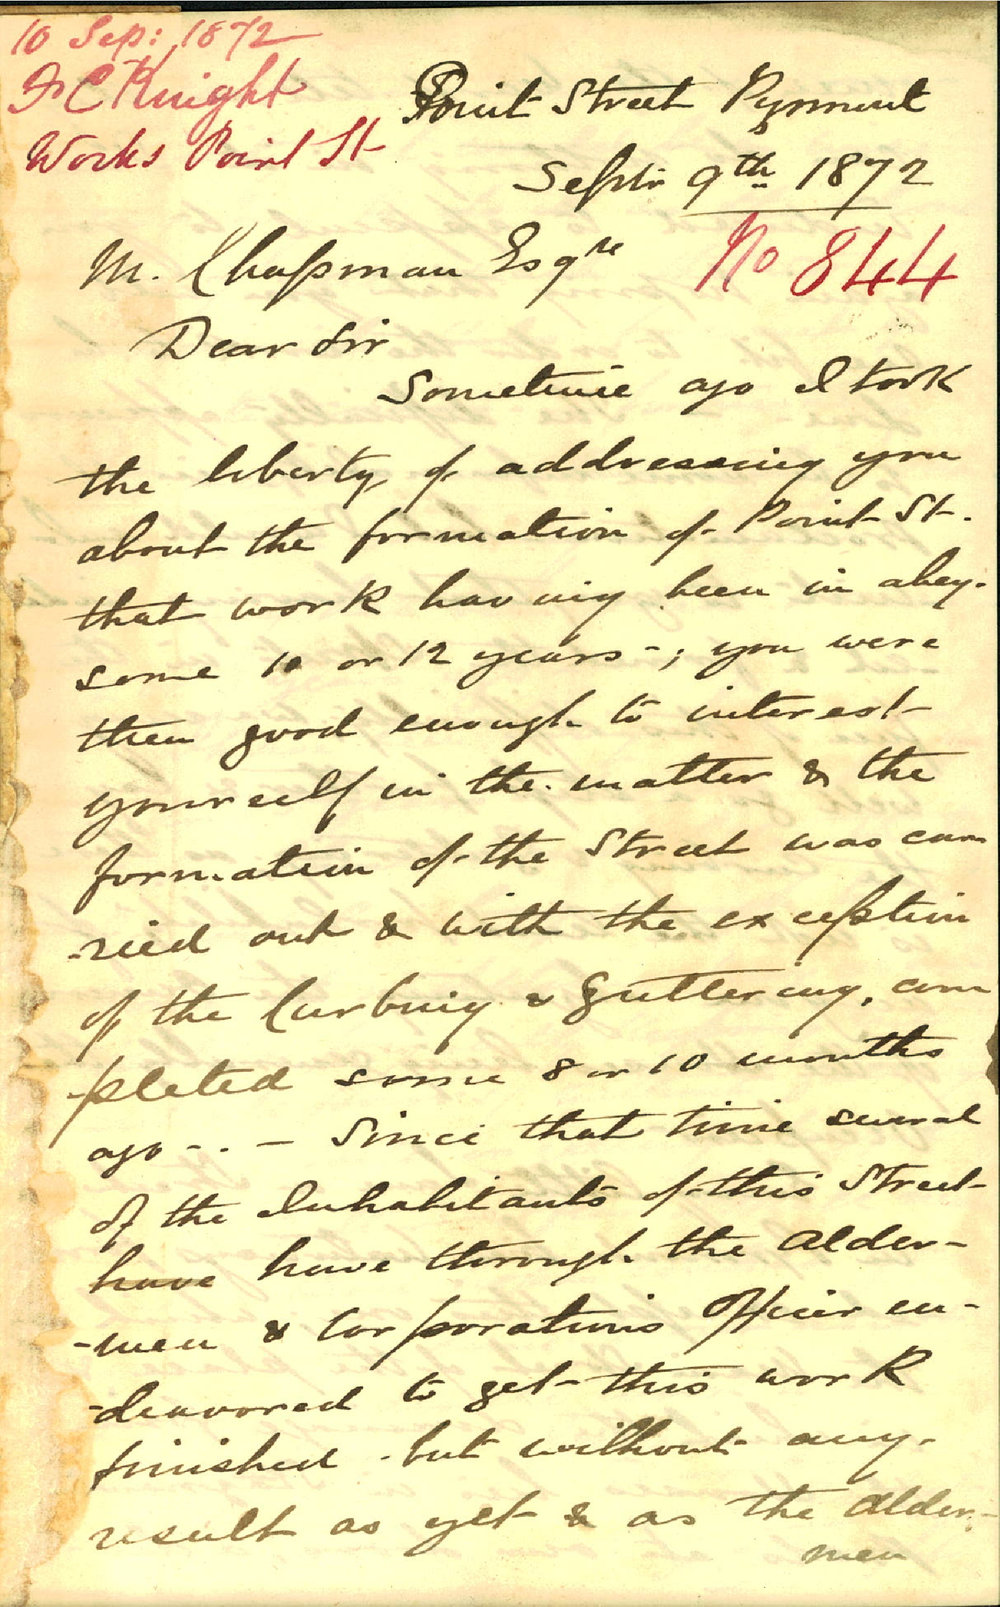 10 Sep: 1872
F C Knight
Works Point St
Point Street Pyrmont
Septr 9th 1872
No 844
M. Chapman Esqre
Dear Sir
Sometime ago I took
the liberty of addressing you
about the formation of Point St.
that work having been in abey.
some 10 or 12 years -; you were
then good enough to interest
yourself in the matter & the
formation of the Street was carr
-ried out & with the exception
of the Curbing & Guttering, com
pleted some 8 or 10 months
ago -. - Since that time several
of the Inhabitants of this Street
have have through the Alder-
-men & Corporations Officer en-
-deavored to get this work
finished but without any
result as yet & as the Alder-
men